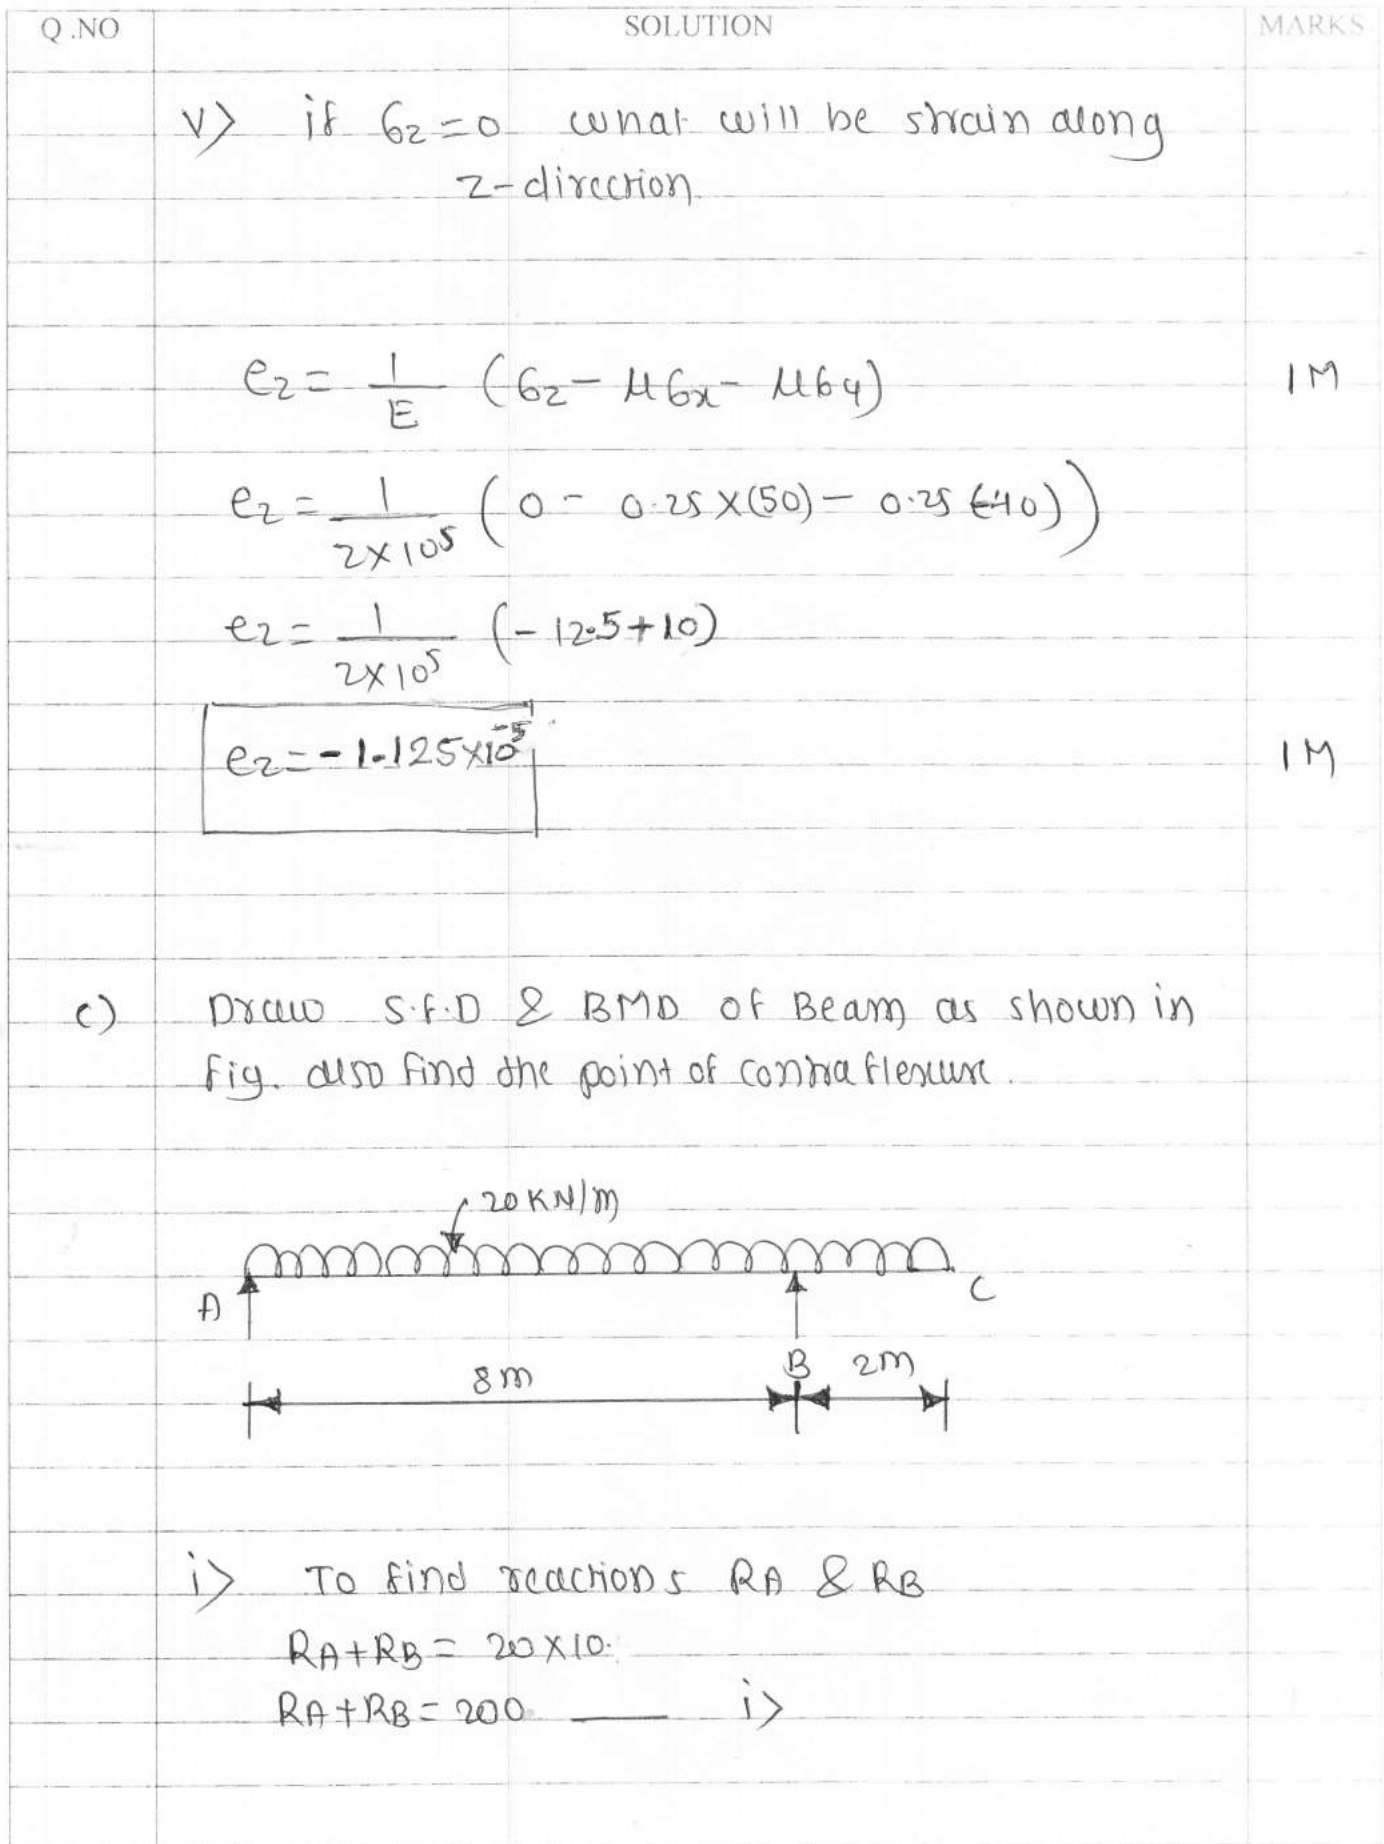 Q.NO SOLUTION MARKS
v> if σz=0 what will be strain along
z-direction.
ez = 1/E (σz - μσx - μσy) 1M
ez = 1/2×10⁵ (0 - 0.25×(50) - 0.25(-40))
ez = 1/2×10⁵ (-12.5+10)
ez = -1.125×10⁻⁵ 1M
c) Draw S.F.D & BMD of Beam as shown in
fig. also find the point of contraflexure.
20KN/m
A C
8m B 2m
i> To find reactions RA & RB
RA+RB = 20×10.
RA+RB = 200 —— i>